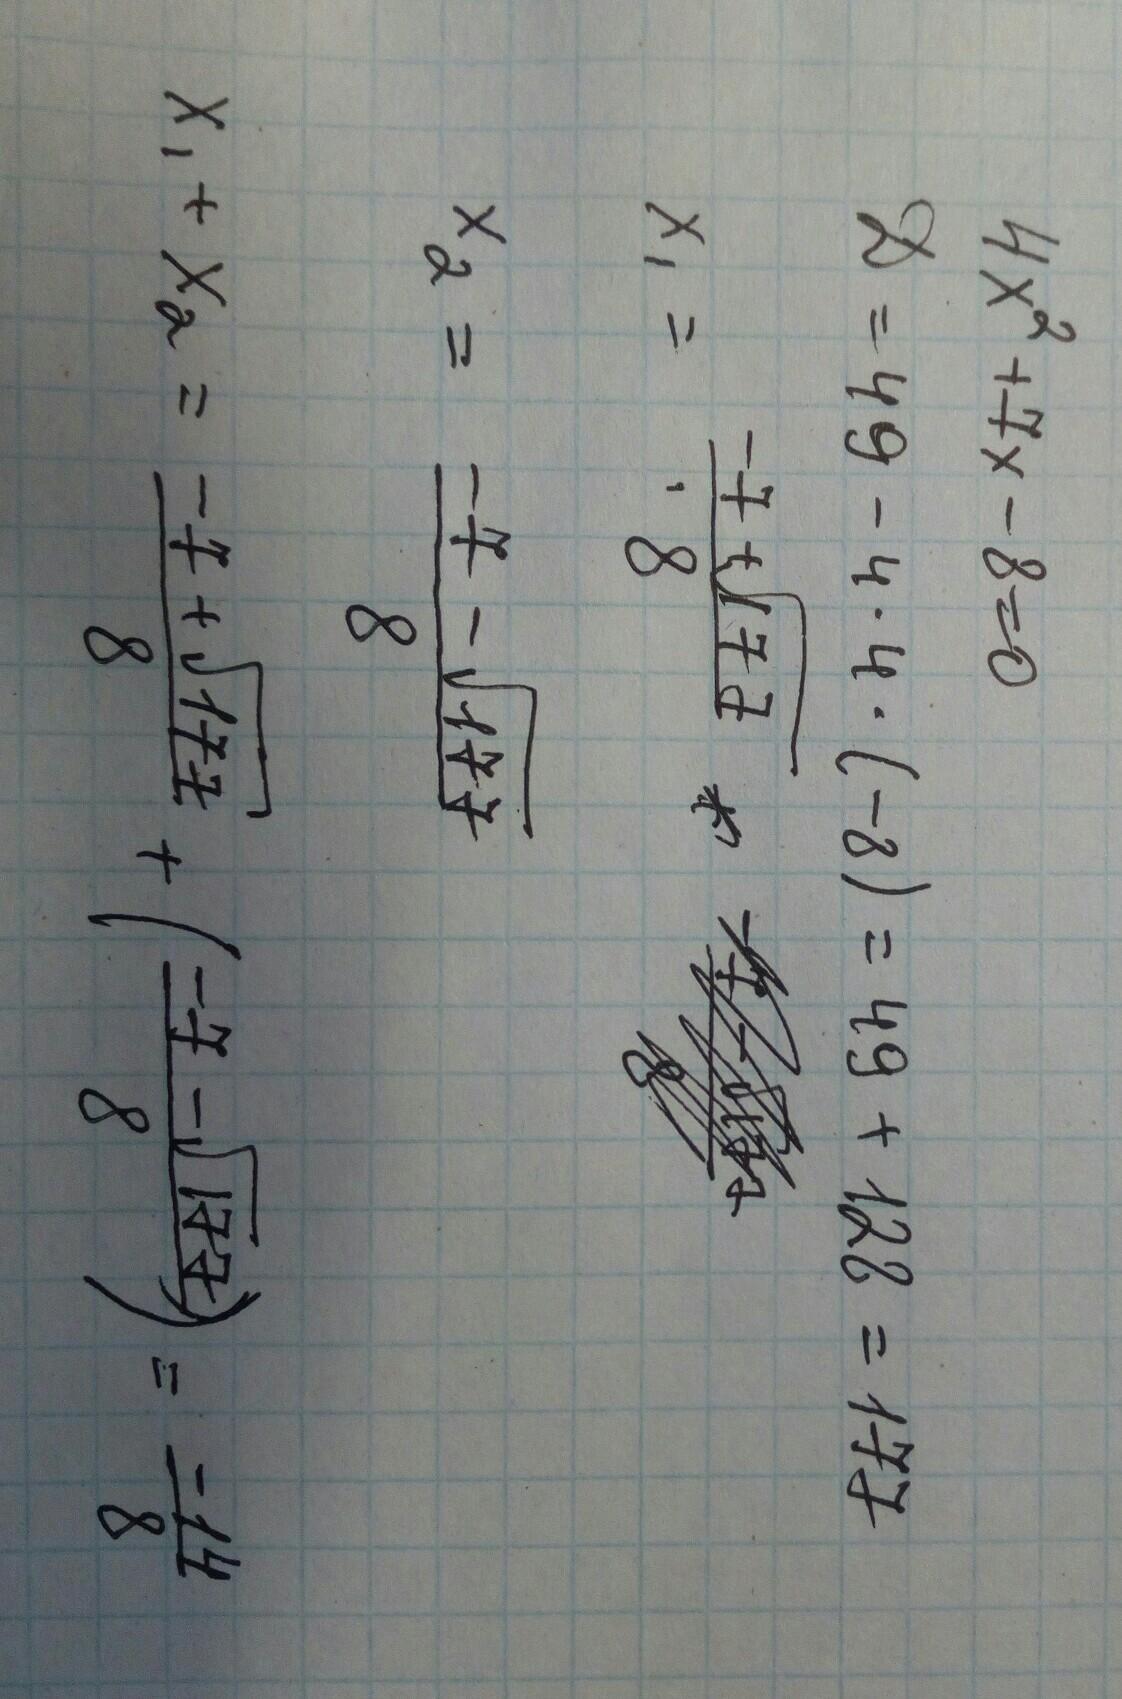 4x²+7x-8=0
D = 49 - 4·4·(-8) = 49 + 128 = 177
x₁ = (-7+√177)/8
x₂ = (-7-√177)/8
x₁ + x₂ = (-7+√177)/8 + ((-7-√177)/8) = -14/8